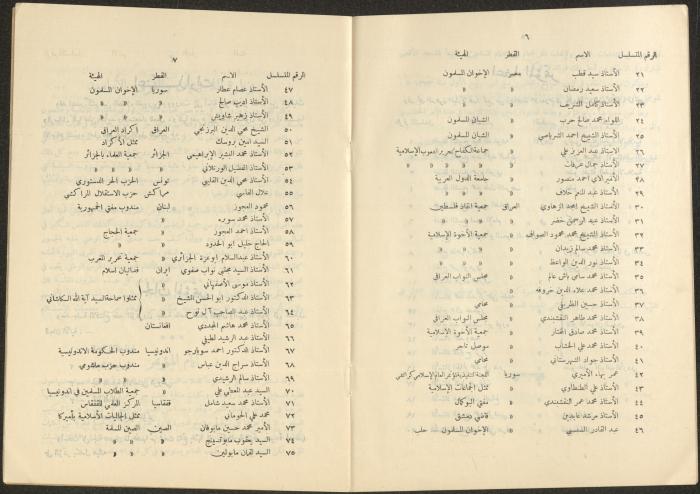 ٦
الرقم المتسلسل الاسم القطر الهيئة
٢١ الأستاذ سيد قطب مصر الإخوان المسلمون
٢٢ الأستاذ سعيد رمضان » »
٢٣ الأستاذ كامل الشريف » »
٢٤ اللواء محمد صالح حرب » الشبان المسلمون
٢٥ الأستاذ الشيخ احمد الشرباصي » الشبان المسلمون
٢٦ الاستاذ عبد العزيز علي » جماعة الكفاح لتحرير الشعوب الإسلامية
٢٧ الأستاذ جمال عرفات » » » » »
٢٨ الأميرالاي احمد منصور » جامعة الدول العربية
٢٩ الأستاذ عبد المنعم خلاف » » » »
٣٠ الأستاذ الشيخ امجد الزهاوي العراق جمعية انقاذ فلسطين
٣١ الأستاذ عبد الرحمن خضر » » » »
٣٢ الأستاذ الشيخ محمد محمود الصواف » جمعية الأخوة الإسلامية
٣٣ الأستاذ محمد سالم زيدان » » » »
٣٤ الأستاذ نور الدين الواعظ » » » »
٣٥ الأستاذ محمد سامي باش عالم » مجلس النواب العراقي
٣٦ الأستاذ محمد علاء الدين خروفه » » » »
٣٧ الأستاذ حسين الظريفي » محامي
٣٨ الأستاذ محمد طاهر النقشبندي » مجلس النواب العراقي
٣٩ الأستاذ محمد صادق المختار » جمعية الأخوة الاسلامية
٤٠ الأستاذ محمد علي الخشاب » موصل تاجر
٤١ الأستاذ جواد الشهرستاني » محامي
٤٢ عمر بهاء الأميري سوريا اللجنة التنفيذية للمؤتمر العالم الإسلامي كراتشي
٤٣ الأستاذ علي الطنطاوي » ممثل الجماعات الاسلامية
٤٤ الأستاذ محمد عمر النقشبندي » مفتي البوكمال
٤٥ الأستاذ مرشد عابدين » قاضي دمشق
٤٦ عبد القادر السبسبي » الإخوان المسلمون حلب
٧
الرقم المتسلسل الاسم القطر الهيئة
٤٧ الأستاذ عصام عطار سوريا الإخوان المسلمون
٤٨ الأستاذ اديب صالح » » »
٤٩ الأستاذ زهير شاويش » » »
٥٠ الشيخ محي الدين البرزنجي العراق أكراد العراق
٥١ السيد امين بروسك ممثل الأكراد
٥٢ الأستاذ محمد البشير الإبراهيمي الجزائر جمعية العلماء بالجزائر
٥٣ الأستاذ الفضيل الورتلاني » » » »
٥٤ الأستاذ محي الدين القليبي تونس الحزب الحر الدستوري
٥٥ علال الفاسي مراكش حزب الاستقلال المراكشي
٥٦ محمود العجوز لبنان مندوب مفتي الجمهورية
٥٧ الأستاذ محمد سوبره » »
٥٨ الأستاذ احمد العجوز » جمعية الحجاج
٥٩ الحاج خليل ابو الحدود » »
٦٠ الأستاذ عبدالسلام ابوعزة الجزائري » جمعية تحرير المغرب
٦١ الأستاذ السيد مجتبى نواب صفوي ايران فدائيان اسلام
٦٢ الأستاذ موسى الأصفهاني »
٦٣ الأستاذ الدكتور ابو الحسن الشيخ » ممثلو اسماحة السيد آية الله الكاشاني
٦٤ الأستاذ عبد الصاحب آل نوح »
٦٥ الأستاذ محمد هاشم المجددي افغانستان
٦٦ الأستاذ عبد الرشيد لطيفي »
٦٧ الأستاذ الدكتور احمد سوبارجو اندونيسيا مندوب الحكومة الاندونيسية
٦٨ الأستاذ سراج الدين عباس » مندوب حزب ماشومي
٦٩ الأستاذ سالم الرشيدي » » » »
٧٠ السيد عبد المعطي علي » جمعية الطلاب المسلمين في اندونيسيا
٧١ الأستاذ محمد سعيد شامل قفقاسيا المركز العلمي للقفقاس
٧٢ محمد علي الحوماني ممثل الجاليات الأسلامية بأميركا
٧٣ الأمير محمد حسين مابوفان الصين الصين المسلمة
٧٤ السيد يعقوب مابوتسونج » » »
٧٥ السيد لقمان مابولين » » »